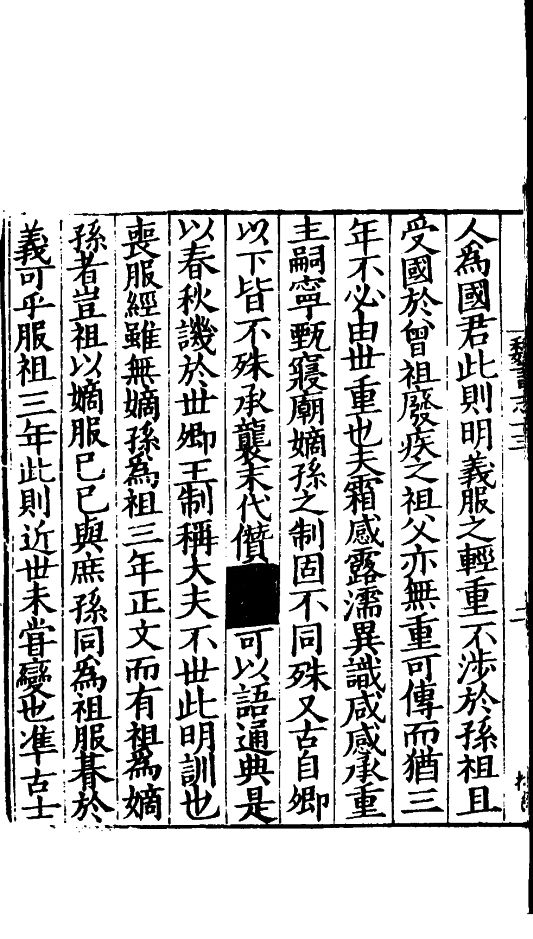 人為國君此則明義服之輕重不涉於孫祖且
受國於曾祖廢疾之祖父亦無重可傳而猶三
年不必由世重也夫霜感露濡異識咸感承重
主嗣寧甄寢廟嫡孫之制固不同殊又古自卿
以下皆不殊承襲末代僭■可以語通典是
以春秋譏於世卿王制稱大夫不世此明訓也
喪服經雖無嫡孫為祖三年正文而有祖為嫡
孫者豈祖以嫡服己己與庶孫同為祖服朞於
義可乎服祖三年此則近世未甞變也准古士